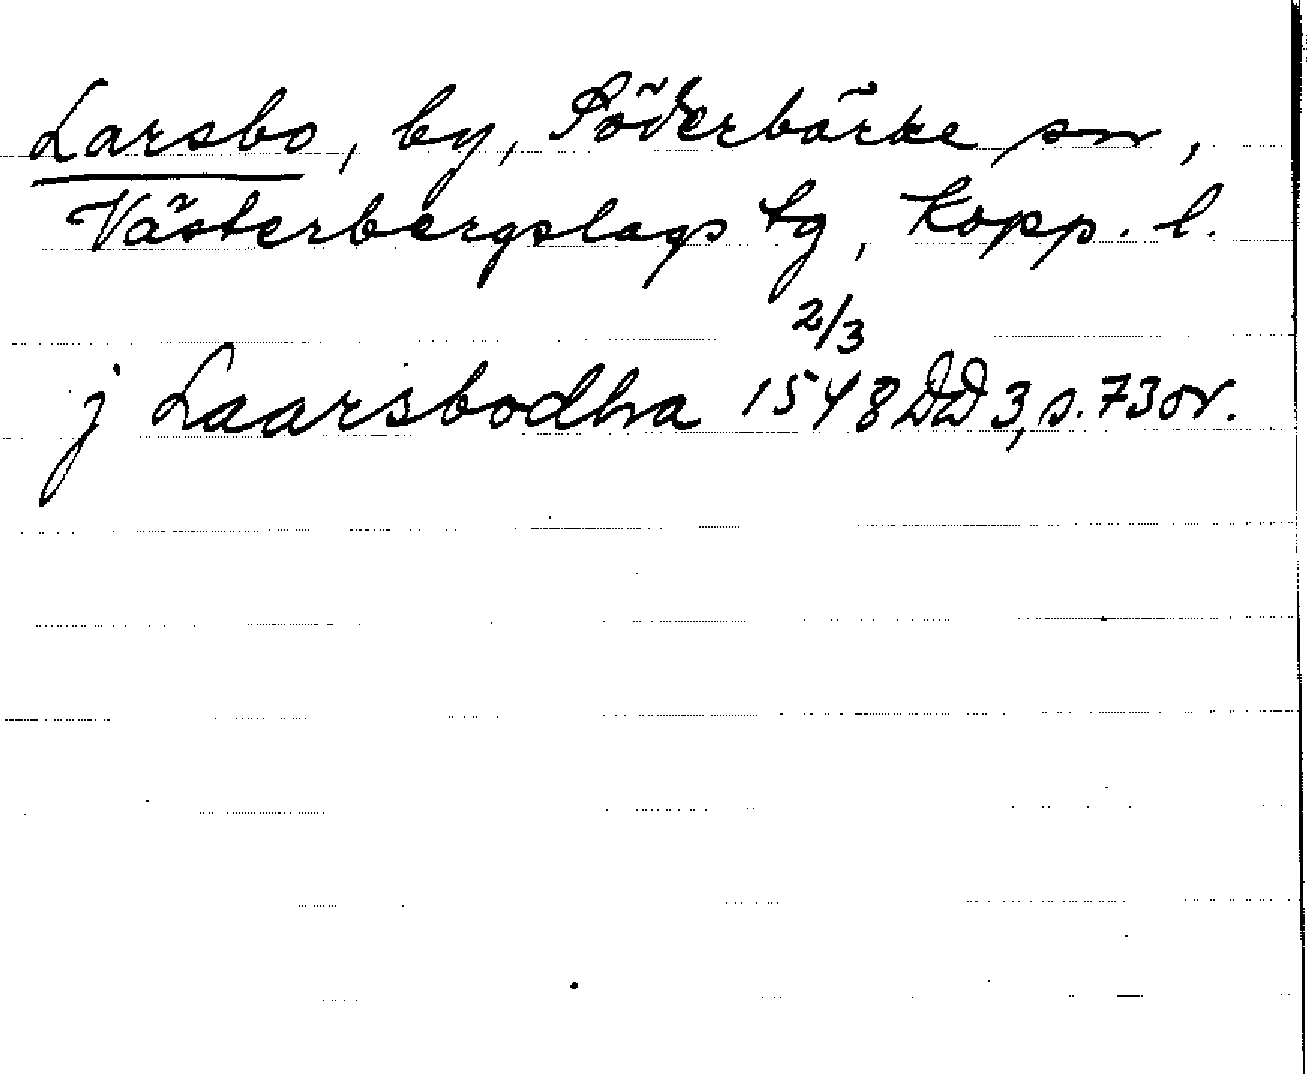 Larsbo, by, Söderbärke sn,
Västerbergslags tg, Kopp. l.
2/3
j Laarsbodha 1548 DD 3, s. 73 or.